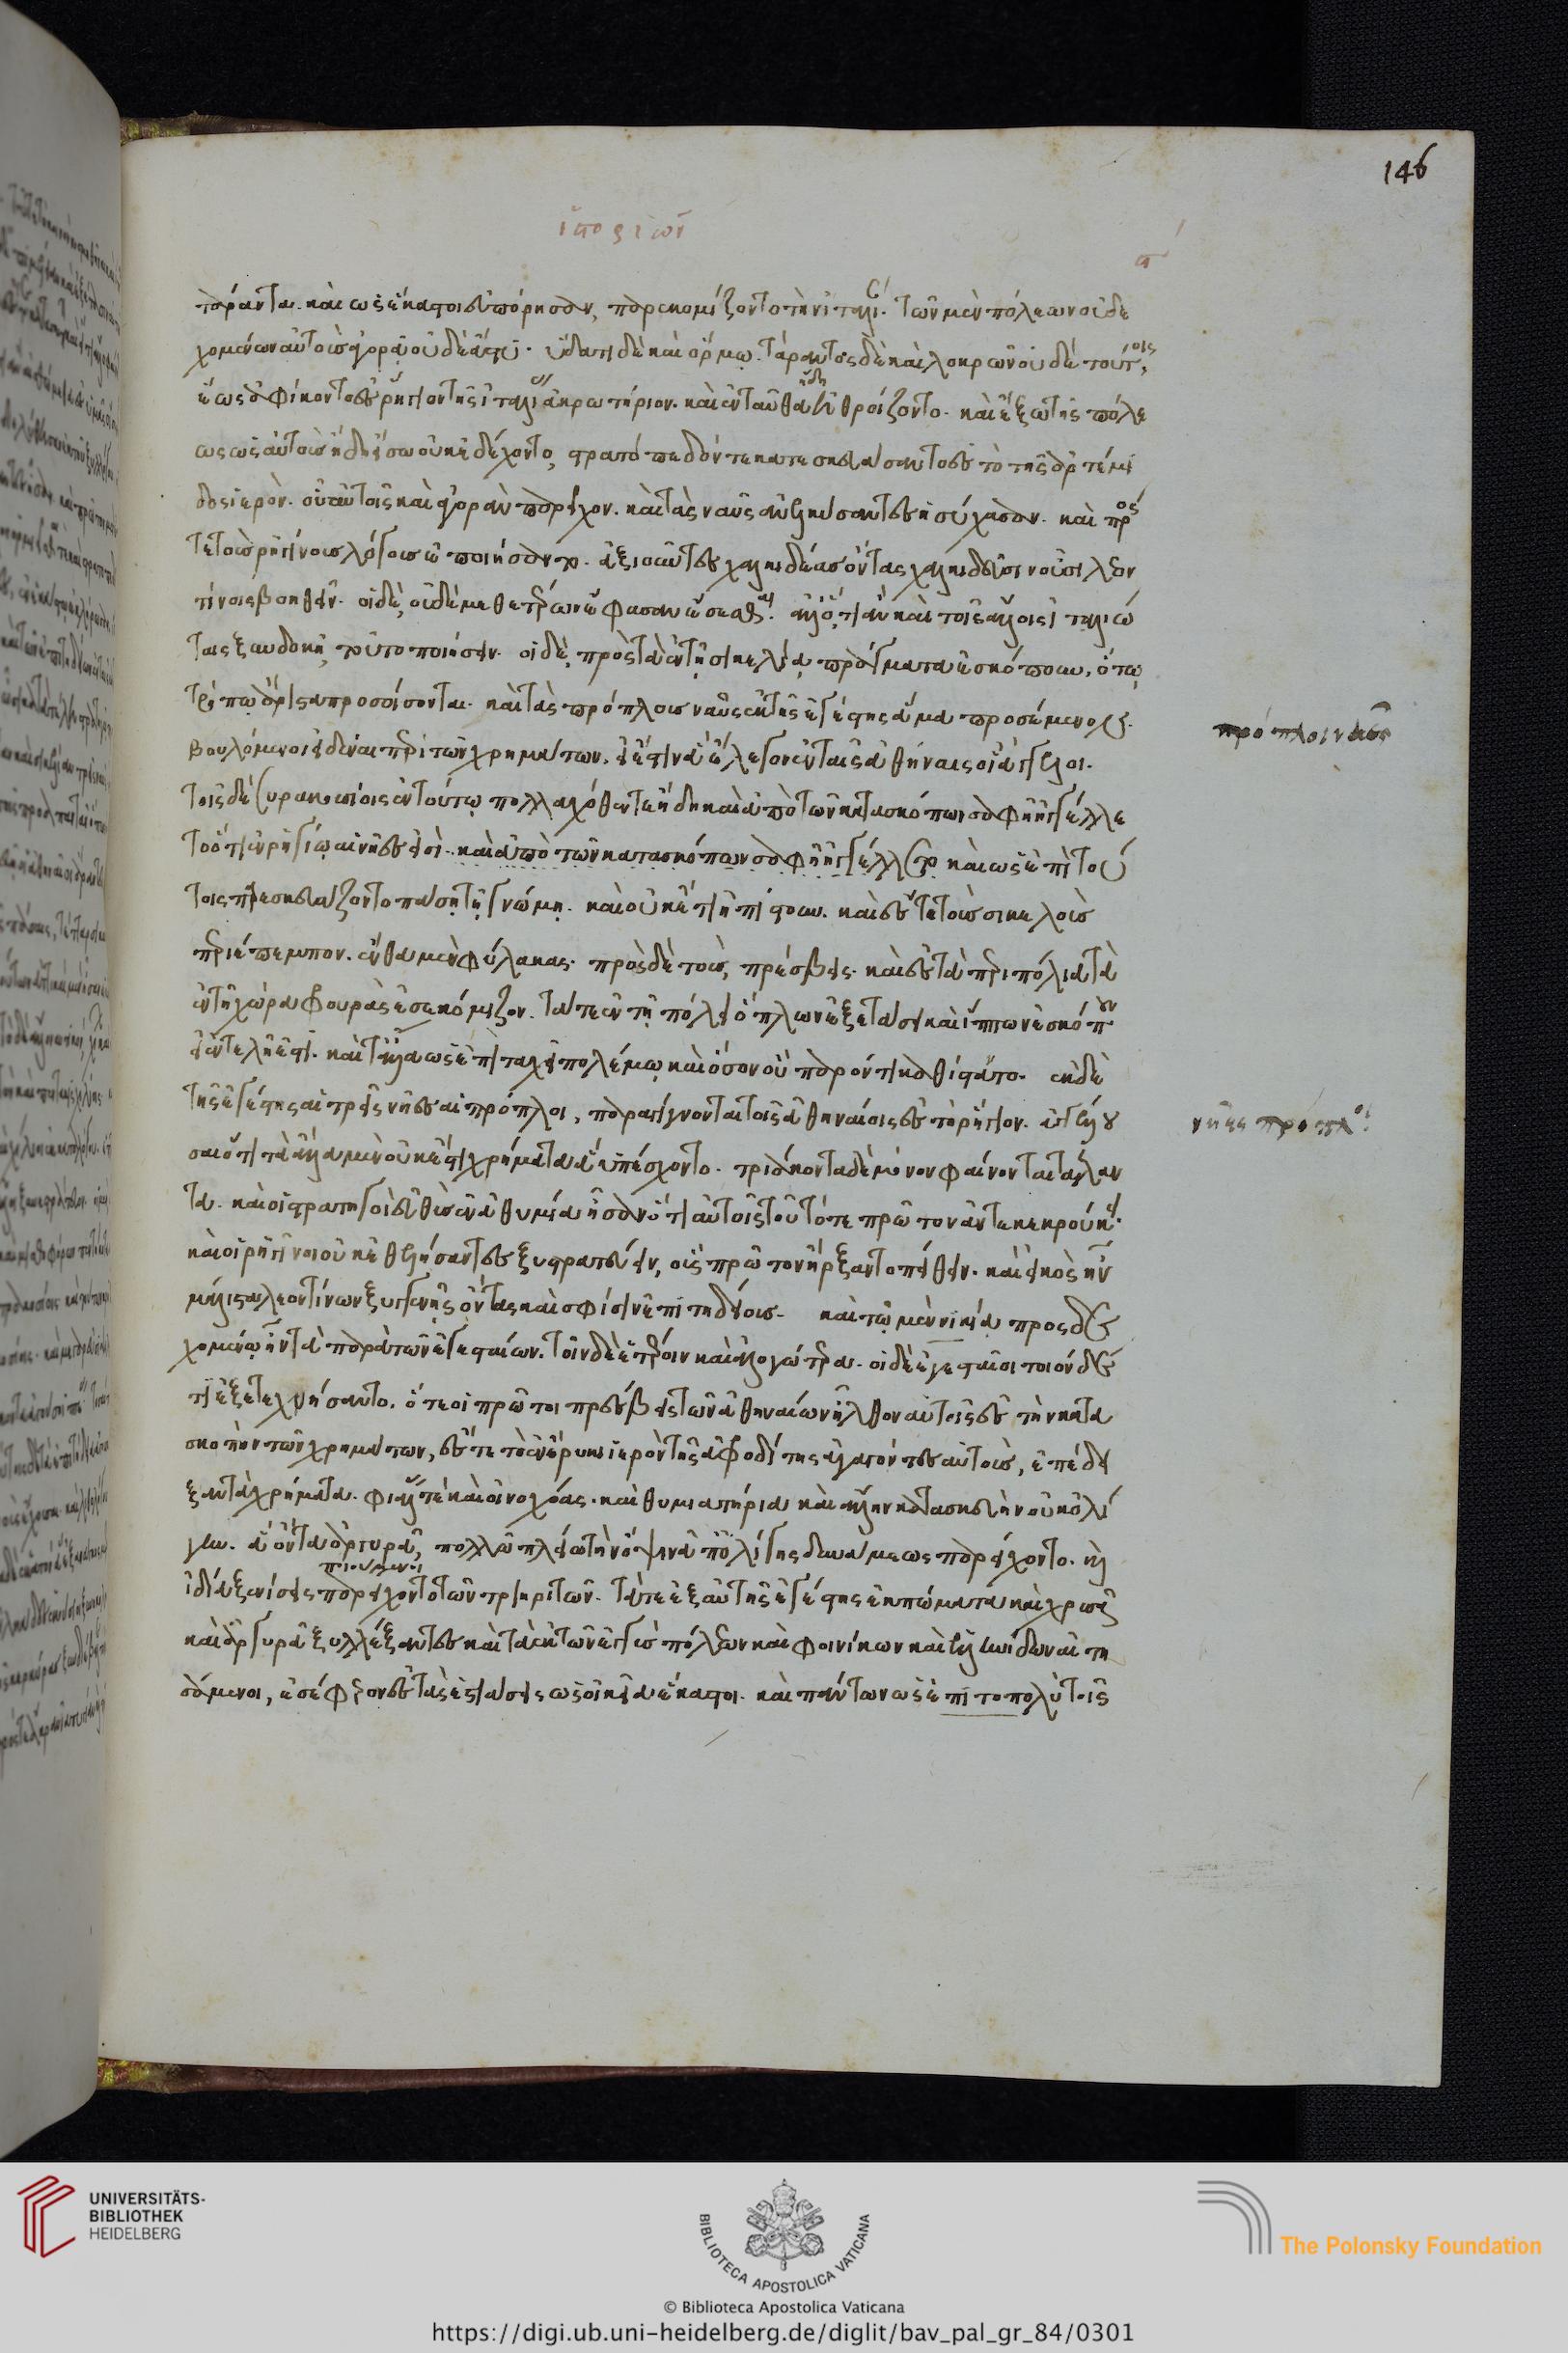 ἱστοριῶν
ϛ´
146
τάραντα. καὶ ὡς ἕκαστοι εὐπόρησαν, παρεκομίζοντο τὴν ἰταλίαν. τῶν μὲν πόλεων οὐ δε
χομένων αὐτοὺς ἀγορᾷ οὐδὲ ἄστει. ὕδατι δὲ καὶ ὅρμῳ. τάραντος δὲ καὶ λοκρῶν οὐδὲ τούτοις,
ἕως ἀφίκοντο ἐς ῥήγιον τῆς ἰταλίας ἀκρωτήριον. καὶ ἐνταῦθα ἤδη ἠθροίζοντο. καὶ ἔξω τῆς πόλε
ως ὡς αὐτοὺς ἤδη ἔσω οὐκ ἐδέχοντο, στρατόπεδόν τε κατεσκευάσαντο ἐς τὸ τῆς ἀρτέμι
δος ἱερὸν. οὗ αὐτοῖς καὶ ἀγορὰν παρεῖχον. καὶ τὰς ναῦς ἀνελκύσαντες ἡσύχασαν. καὶ πρός
τε τοὺς ῥηγίνους λόγους ἐποιήσαντο. ἀξιοῦντες χαλκιδέας ὄντας χαλκιδεῦσιν οὖσι λεον
τίνοις βοηθεῖν. οἱ δὲ, οὐδὲ μεθετέρων ἔφασαν ἔσεσθαι. ἀλλ' ὅ,τι ἂν καὶ τοῖς ἄλλοις ἰταλιώ
ταις ξυνδοκῇ τοῦτο ποιήσειν. οἱ δὲ, πρὸς τὰ ἐν τῇ σικελίᾳ πράγματα ἐσκόπουν, ὅτῳ
τρόπῳ ἄριστα προσοίσονται. καὶ τὰς πρόπλους ναῦς ἐκ τῆς ἐγέστης ἅμα προσέμενον.
βουλόμενοι εἰδέναι περὶ τῶν χρημάτων. εἰ ἔστιν ἃ ἔλεγον ἐν ταῖς ἀθήναις οἱ ἄγγελοι.
τοῖς δὲ συρακοσίοις ἐν τούτῳ πολλαχόθεν τε ἤδη καὶ ἀπὸ τῶν κατασκόπων σαφῆ ἠγγέλλε
το ὅτι ἐν ῥηγίῳ αἱ νῆές εἰσι. καὶ ἀπὸ τῶν κατασκόπων σαφῆ ἠγγέλλετο καὶ ὡς ἐπὶ τού
τοις παρεσκευάζοντο πάσῃ τῇ γνώμῃ. καὶ οὐκέτι ἠπίστουν. καὶ ἔς τε τοὺς σικελοὺς
περιέπεμπον. ἔνθα μὲν φύλακας. πρὸς δὲ τοὺς, πρέσβεις. καὶ ἐς τὰ περιπόλια τὰ
ἐν τῇ χώρᾳ φρουρὰς ἐσεκόμιζον. τά τε ἐν τῇ πόλει ὅπλων ἐξετάσει καὶ ἵππων ἐσκόπουν
εἰ ἐντελῆ ἐστι. καὶ τἆλλα ὡς ἐπὶ ταχεῖ πολέμῳ καὶ ὅσον οὐ παρόντι καθίσταντο. αἱ δὲ
τῆς ἐγέστης αἱ τρεῖς νῆες αἱ πρόπλοι, παραγίγνονται τοῖς ἀθηναίοις ἐς τὸ ῥήγιον. ἀγγέλλου
σαι ὅτι τὰ ἄλλα μὲν οὐκ ἔστι χρήματα ἃ ὑπέσχοντο. τριάκοντα δὲ μόνον φαίνονται τάλαν
τα. καὶ οἱ στρατηγοὶ εὐθὺς ἐν ἀθυμίᾳ ἦσαν ὅτι αὐτοῖς τοῦτό τε πρῶτον ἀντεκεκρούκει.
καὶ οἱ ῥηγῖνοι οὐκ ἐθελήσαντες ξυστρατεύειν, οὓς πρῶτον ἤρξαντο πείθειν. καὶ εἰκὸς ἦν
μάλιστα λεοντίνων ξυγγενεῖς ὄντας καὶ σφίσιν ἐπιτηδείους. καὶ τῷ μὲν νικίᾳ προσδε
χομένῳ ἦν τὰ παρὰ τῶν ἐγεσταίων. τοῖν δὲ ἑτέροιν καὶ ἀλογώτερα. οἱ δὲ ἐγεσταῖοι τοιόνδε
τι ἐξετεχνήσαντο. ὅτε οἱ πρῶτοι πρέσβεις τῶν ἀθηναίων ἦλθον αὐτοῖς ἐς τὴν κατα
σκοπὴν τῶν χρημάτων, ἔς τε τὸ ἐν ἔρυκι ἱερὸν τῆς ἀφροδίτης ἀγαγόντες αὐτοὺς, ἐπέδει
ξαν τὰ χρήματα. φιάλας τε καὶ οἰνοχόας. καὶ θυμιατήρια καὶ ἄλλην κατασκευὴν οὐκ ὀλί
γην. ἃ ὄντα ἀργυρᾶ, πολλῷ πλείω τὴν ὄψιν ἀπ' ὀλίγης δυνάμεως παρείχοντο. καὶ
ἰδίᾳ ξενίσεις ποιούμενοι παρείχοντο τῶν τριηριτῶν. τά τε ἐξ αὐτῆς ἐγέστης ἐκπώματα καὶ χρυσᾶ
καὶ ἀργυρᾶ ξυλλέξαντες καὶ τὰ ἐκ τῶν ἐγγὺς πόλεων καὶ φοινίκων καὶ ἑλληνίδων αἰτη
σάμενοι, ἐσέφερον ἐς τὰς ἑστιάσεις ὡς οἰκεῖα ἕκαστοι. καὶ πάντων ὡς ἐπὶ τὸ πολὺ τοῖς
πρόπλοι νῆες
νῆες πρόπλοι
UNIVERSITÄTS-
BIBLIOTHEK
HEIDELBERG
BIBLIOTECA APOSTOLICA VATICANA
The Polonsky Foundation
© Biblioteca Apostolica Vaticana
https://digi.ub.uni-heidelberg.de/diglit/bav_pal_gr_84/0301